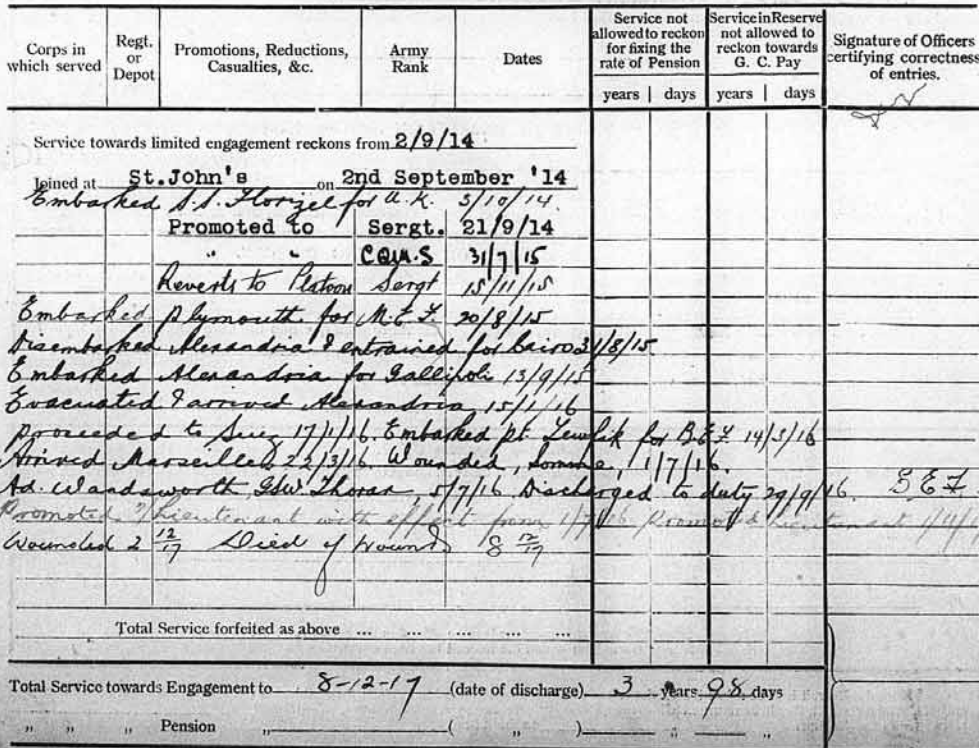 Corps in which served
Regt. or Depot
Promotions, Reductions, Casualties, &c.
Army Rank
Dates
Service not allowed to reckon for fixing the rate of Pension
Service in Reserve not allowed to reckon towards G. C. Pay
Signature of Officers certifying correctness of entries.
years | days years | days
Service towards limited engagement reckons from 2/9/14
Joined at St. John's on 2nd September '14
Embarked S.S. Florizel for U.K. 3/10/14.
Promoted to Sergt. 21/9/14
" " C.Q.M.S 31/7/15
Reverts to Platoon Sergt 15/11/15
Embarked Plymouth for M.E.F. 20/8/15
Disembarked Alexandria & entrained for Cairo 31/8/15
Embarked Alexandria for Gallipoli 13/9/15
Evacuated & arrived Alexandria 15/1/16
proceeded to Suez 17/1/16. Embarked Pt. Tewfik for B.E.F. 14/3/16
Arrived Marseilles 22/3/16. Wounded, Somme, 1/7/16.
Ad. Wandsworth, GSW. Thorax, 5/7/16. Discharged to duty 29/9/16.
Promoted 2/Lieutenant with effect from 1/7/16. Promoted Lieutenant
Wounded 2 12/17 Died of Wounds 8 12/17
Total Service forfeited as above ... ... ... ... ...
Total Service towards Engagement to 8-12-17 (date of discharge) 3 years 98 days
" " " Pension ( " ) " "